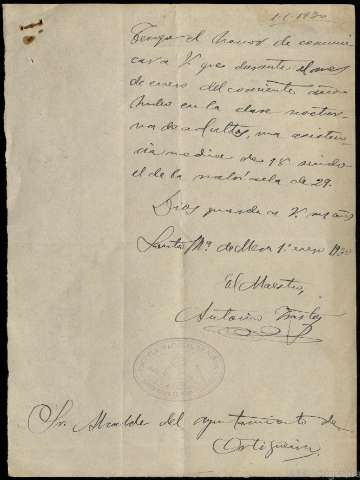 1-1-1930
Tengo el honor de comunicar
a V. que durante el mes
de enero del corriente año
hubo en la clase noctur
na de adultos, una asisten
cia media de 18 siendo
el de la matrícula de 29.
Dios guarde a V. ms años
Santa Mª de Mera 1º enero 1930
El Maestro,
Antonio
Sr. Alcalde del ayuntamiento de
Ortigueira